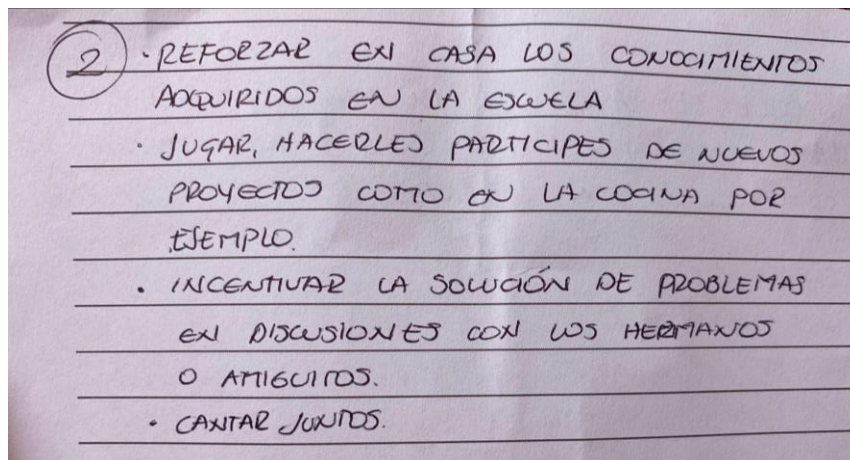 2 · REFORZAR EN CASA LOS CONOCIMIENTOS
ADQUIRIDOS EN LA ESCUELA
· JUGAR, HACERLES PARTICIPES DE NUEVOS
PROYECTOS COMO EN LA COCINA POR
EJEMPLO.
· INCENTIVAR LA SOLUCIÓN DE PROBLEMAS
EN DISCUSIONES CON LOS HERMANOS
O AMIGUITOS.
· CANTAR JUNTOS.